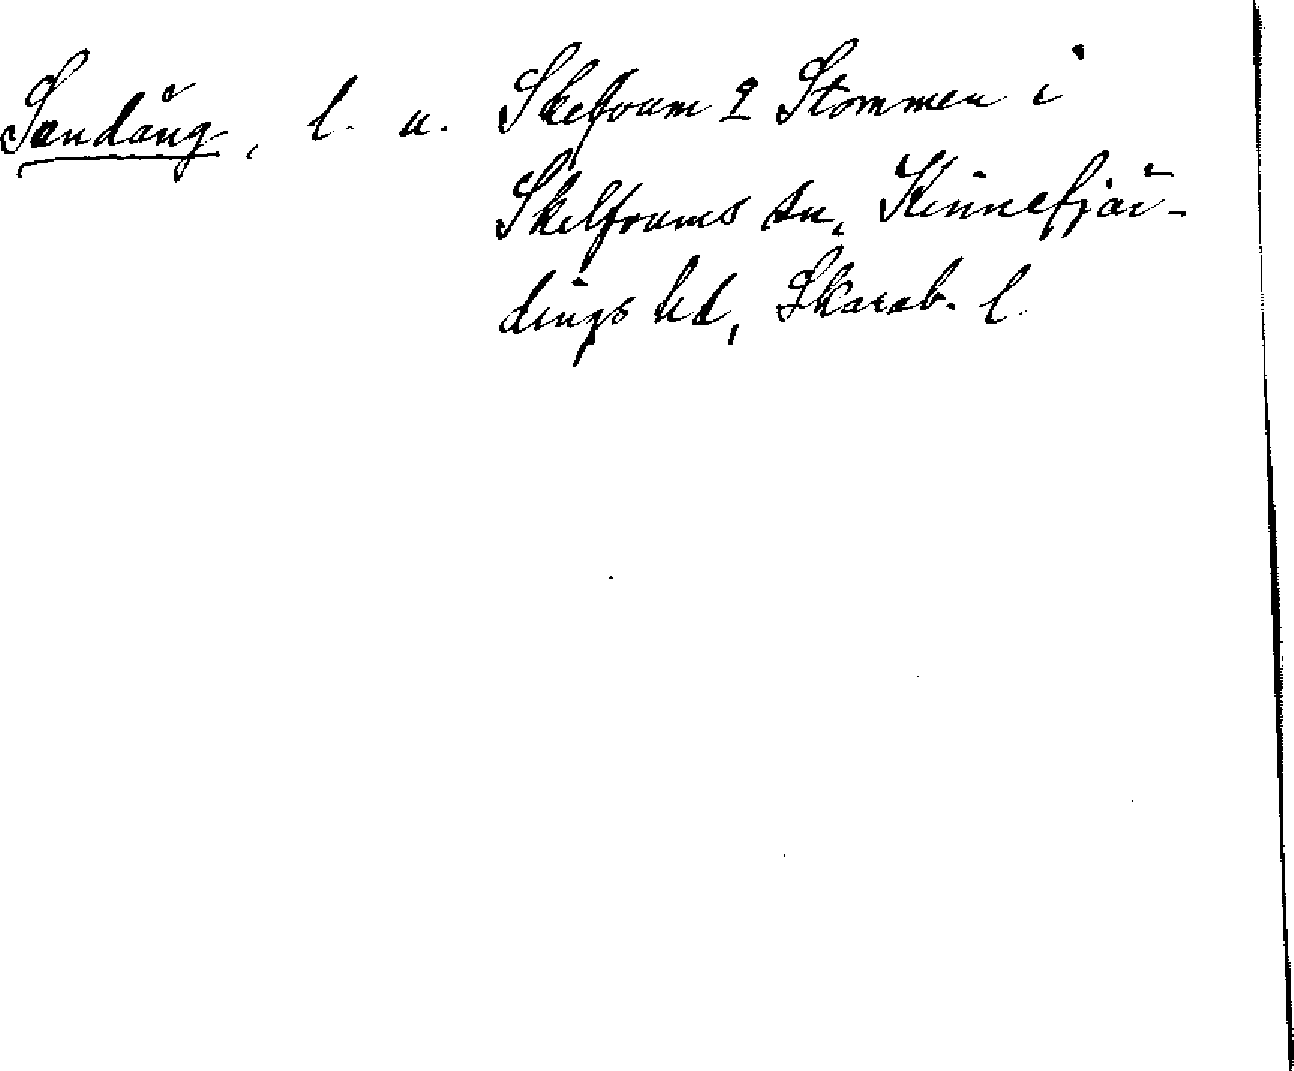 Sandäng, l. u. Skefvum 2 Stommen i
Skelfvums sn, Kinnefjär-
dings hd, Skarab. l.